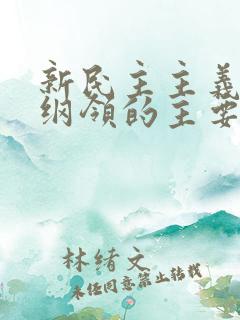 新民主主义
纲领的主要
林绪文
未经同意禁止转载